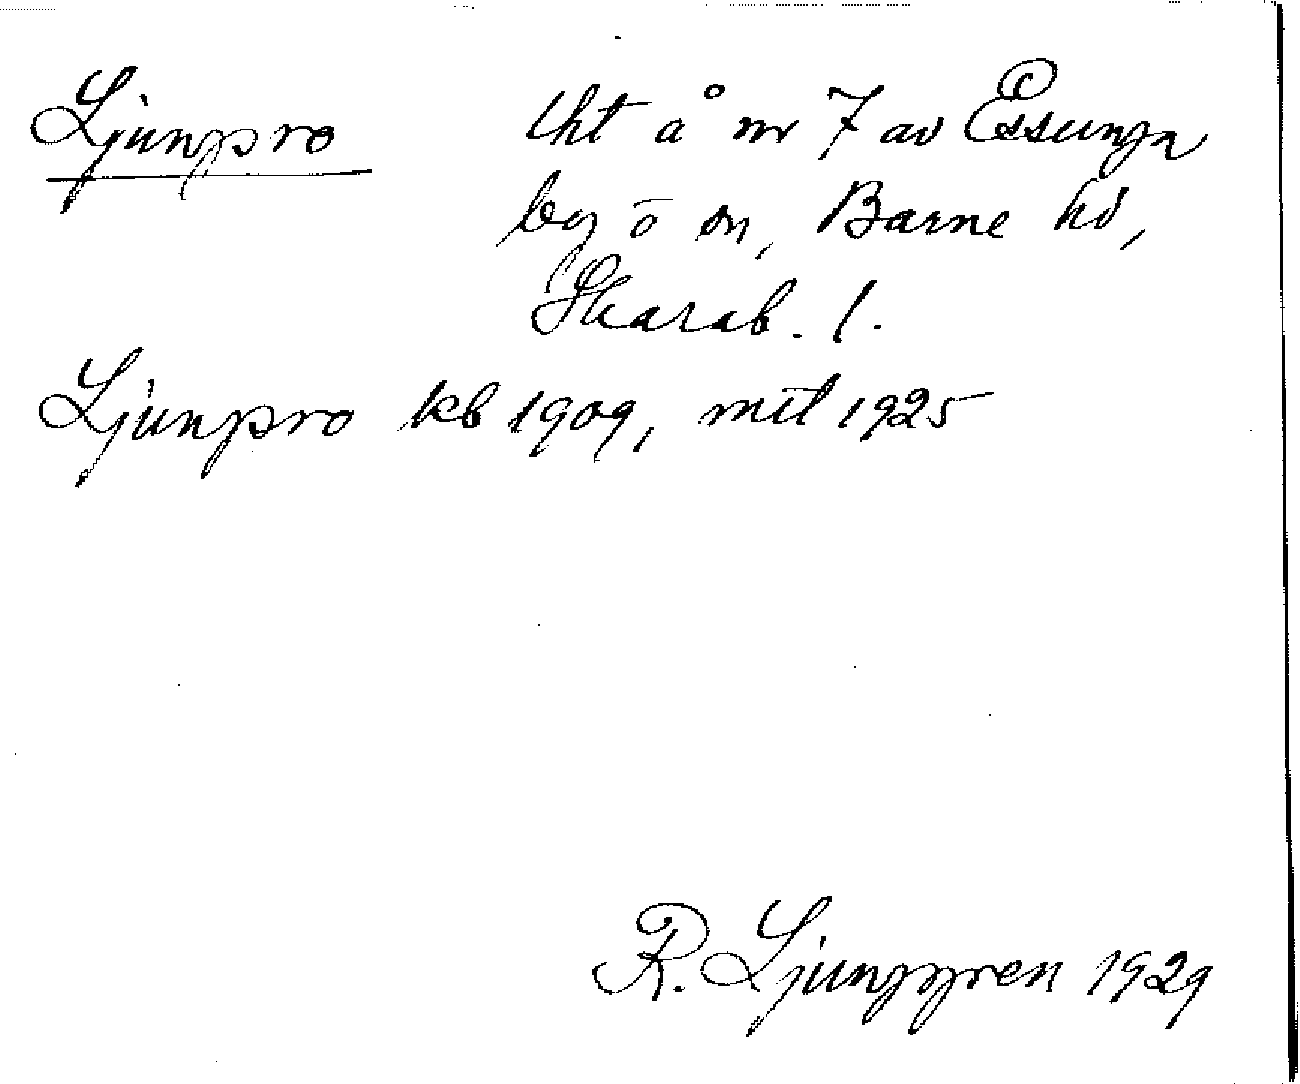 Ljunpro   lht å nr 7 av Essunga
by o sn, Barne hd,
Skarab. l.
Ljunpro kb 1909, mtl 1925
R. Ljunggren 1929